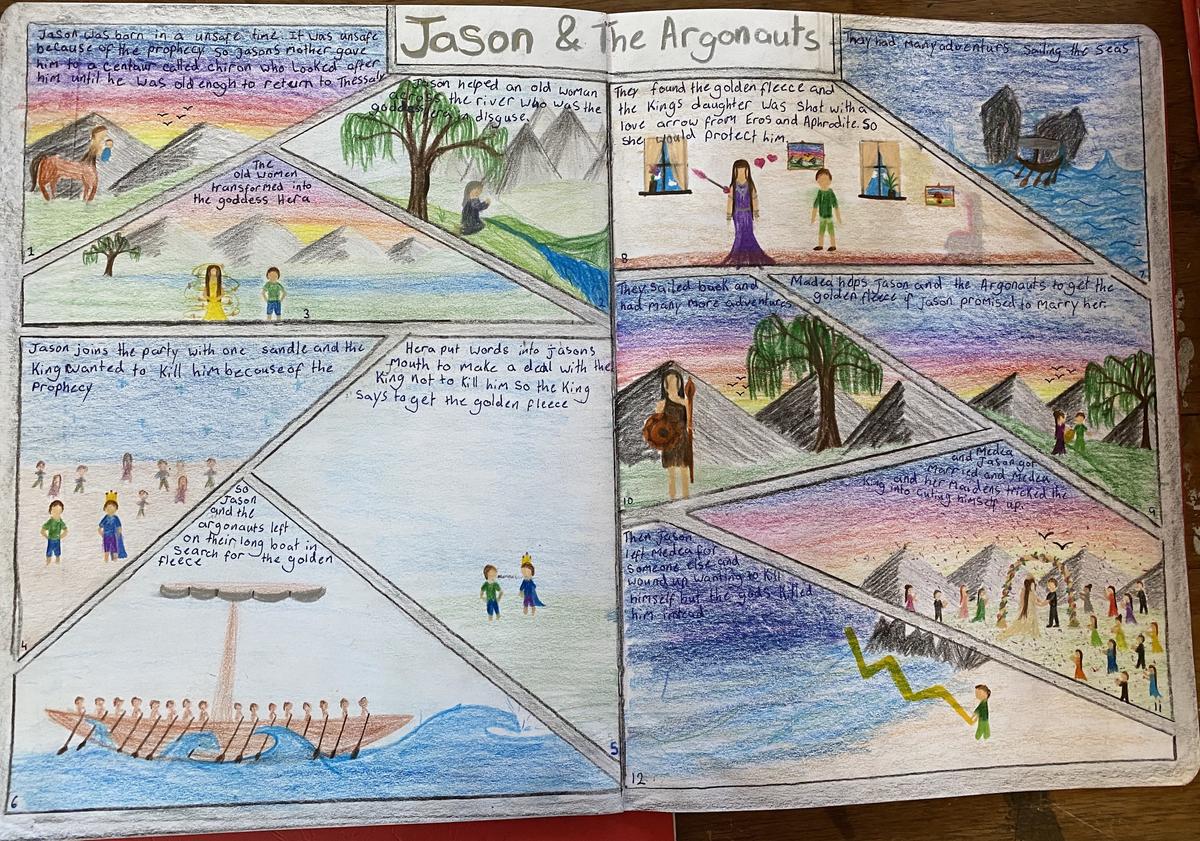 Jason & The Argonauts
Jason was born in a unsafe time. It was unsafe
because of the prophecy. So jasons mother gave
him to a centaur called chiron who looked after
him until he was old enogh to return to Thessaly
1
Jason helped an old woman
the river who was the
goddess in disguse.
2
The
old women
transformed into
the goddess Hera
3
Jason joins the party with one sandle and the
King wanted to kill him becouse of the
Prophecy
4
Hera put words into jasons
mouth to make a deal with the
King not to kill him so the King
says to get the golden fleece
5
So
Jason
and the
argonauts left
on their long boat in
search for the golden
fleece
6
They had many adventurs sailing the seas
7
They found the golden fleece and
the Kings daughter was shot with a
love arrow from Eros and Aphrodite. So
she would protect him.
8
Madea helps Jason and the Argonauts to get the
golden fleece if Jason promised to marry her.
9
They sailed back and
had many more adventures
10
and Medea
Jason got
Married and Medea
and her maidens tricked the
King into cuting himself up.
11
Then Jason
left Medea for
someone else and
wound up wanting to kill
himself but the gods killed
him instead
12